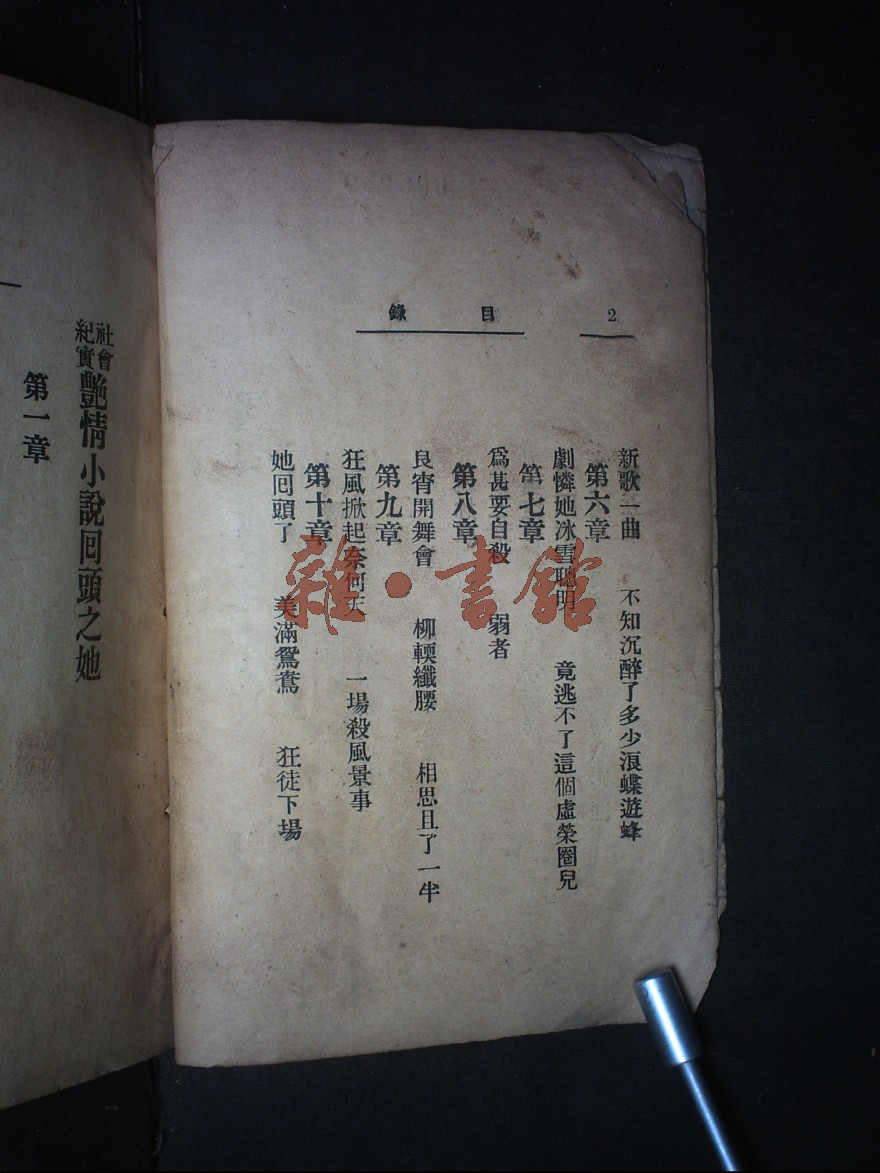 2
目錄
新歌一曲　不知沉醉了多少浪蝶遊蜂
第六章
劇憐她冰雪聰明　竟逃不了這個虛榮圈兒
第七章
爲甚要自殺　弱者
第八章
良宵開舞會　柳輭纖腰　相思且了一半
第九章
狂風掀起奈何天　一場殺風景事
第十章
她囘頭了　美滿鴛鴦　狂徒下場
社會紀實艷情小說囘頭之她
第一章
雜·書館